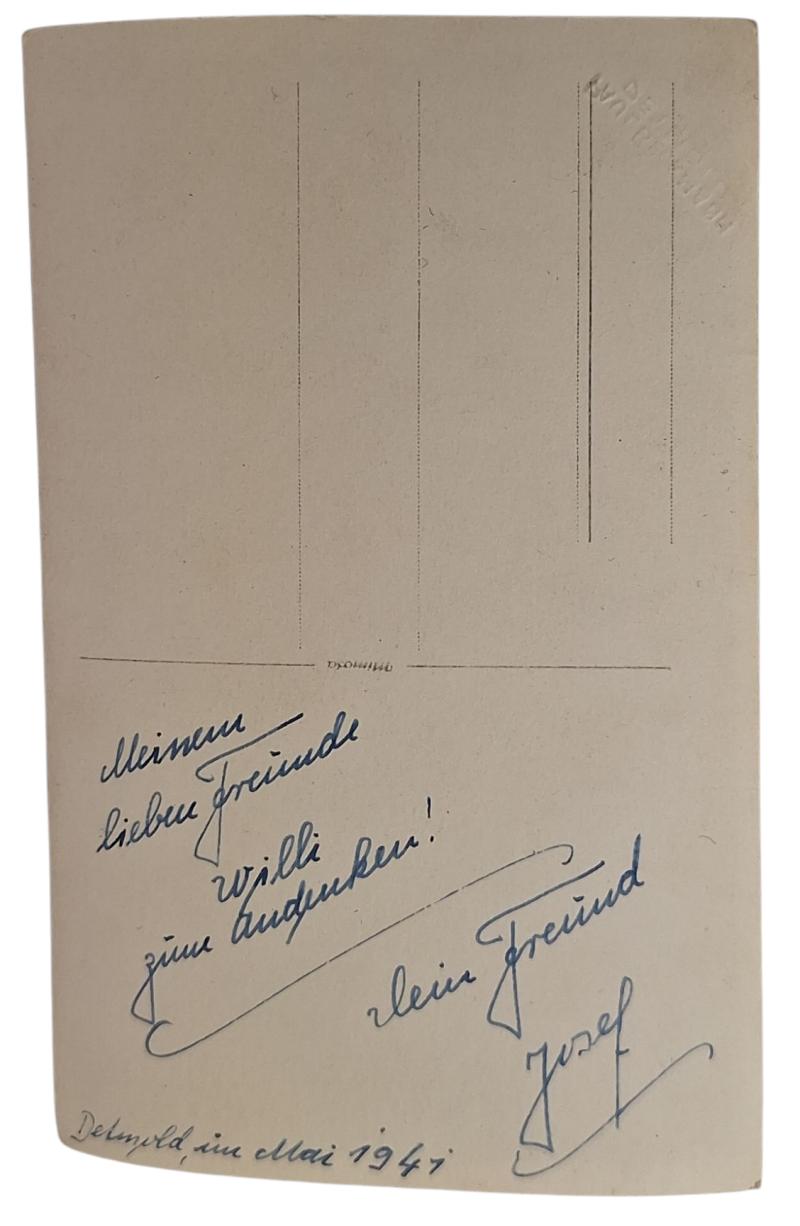 mimosa
Meinem
lieben Freunde
Willi
zum Andenken!
Dein Freund
Josef
Detmold, im Mai 1941